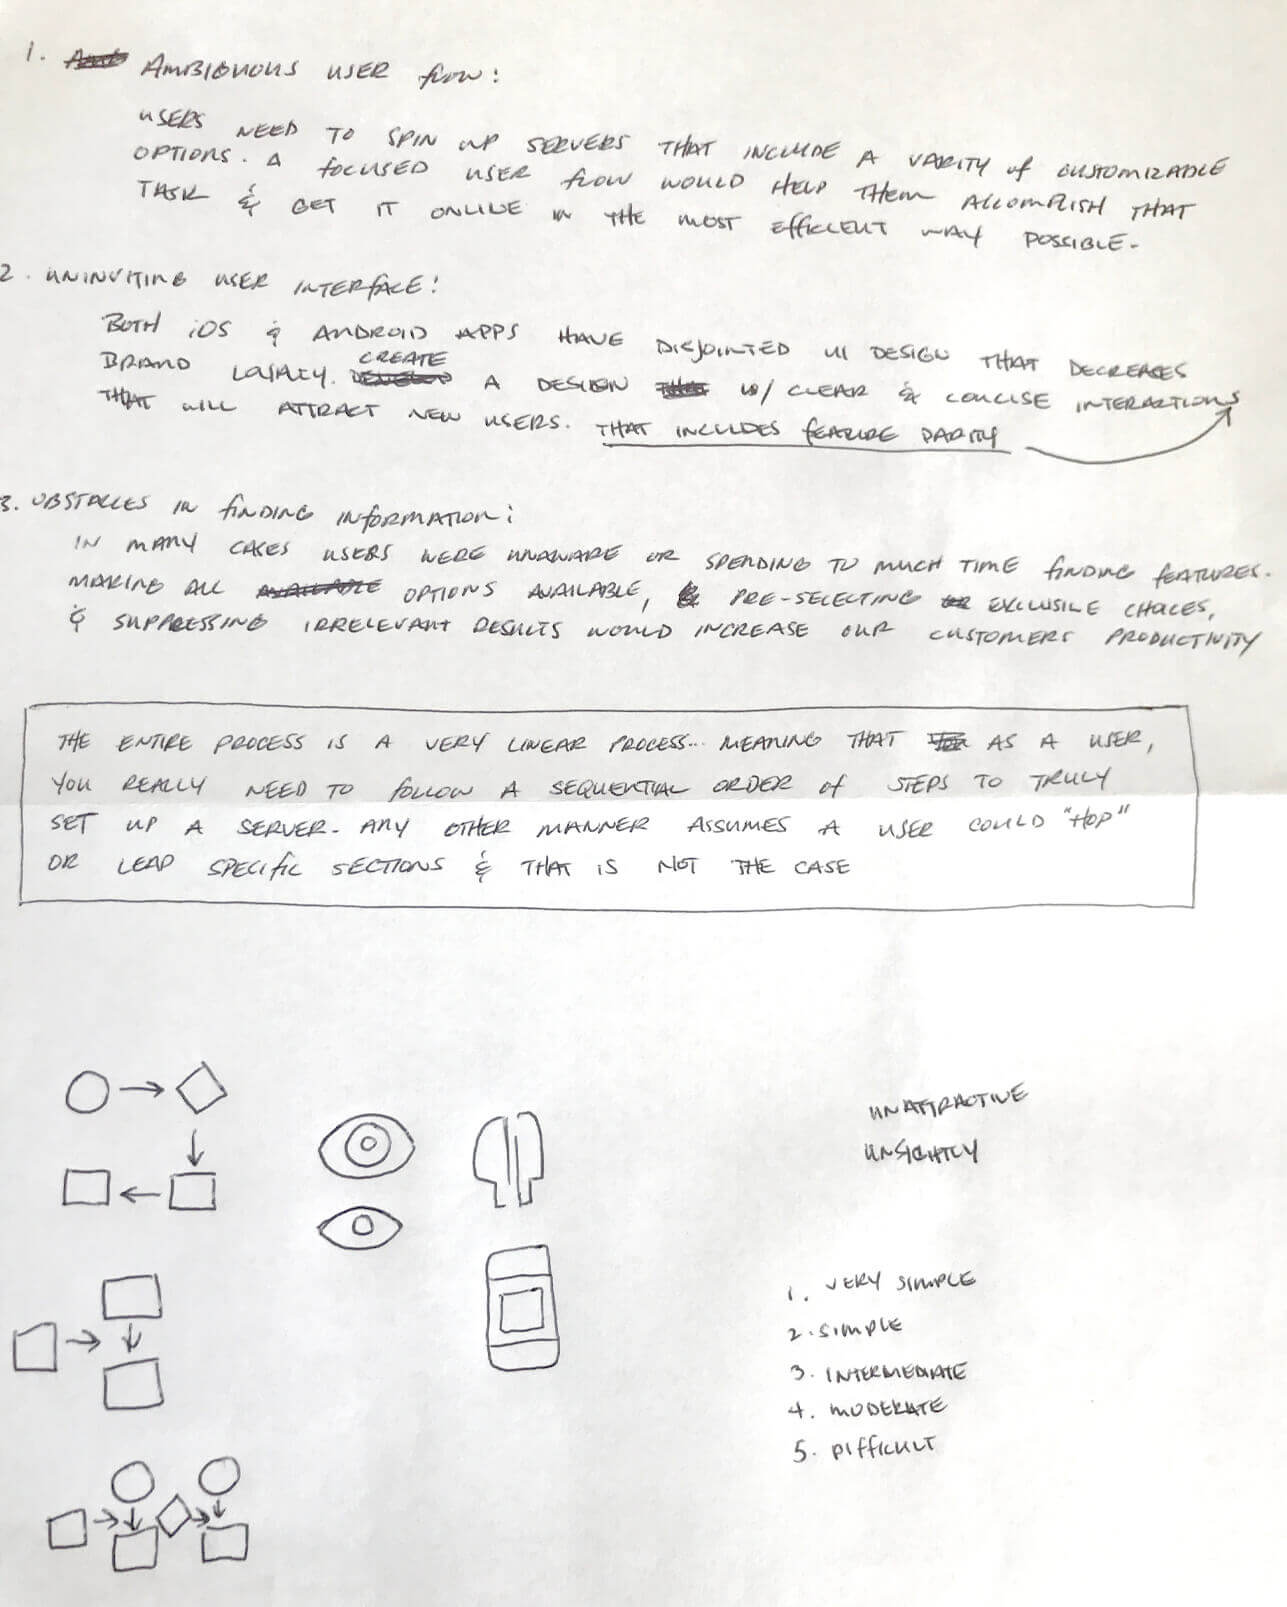 1. AMBIGUOUS USER flow:
USERS NEED TO SPIN UP SERVERS THAT INCLUDE A VARITY of CUSTOMIZABLE
OPTIONS. A FOCUSED USER FLOW WOULD HELP THEM ACCOMPLISH THAT
TASK & GET IT ONLINE IN THE MOST EFFICIENT WAY POSSIBLE.
2. UNINVITING USER INTERFACE:
BOTH iOS & ANDROID APPS HAVE DISJOINTED UI DESIGN THAT DECREASES
CREATE
BRAND LOYALTY. A DESIGN W/ CLEAR & CONCISE INTERACTIONS
THAT WILL ATTRACT NEW USERS. THAT INCLUDES FEATURE PARITY
3. OBSTACLES IN FINDING INFORMATION:
IN MANY CASES USERS WERE UNAWARE OR SPENDING TO MUCH TIME FINDING FEATURES.
MAKING ALL OPTIONS AVAILABLE, PRE-SELECTING EXCLUSIVE CHOICES,
& SUPPRESSING IRRELEVANT RESULTS WOULD INCREASE OUR CUSTOMERS PRODUCTIVITY
THE ENTIRE PROCESS IS A VERY LINEAR PROCESS... MEANING THAT AS A USER,
YOU REALLY NEED TO FOLLOW A SEQUENTIAL ORDER of STEPS TO TRULY
SET UP A SERVER. ANY OTHER MANNER ASSUMES A USER COULD "HOP"
OR LEAP SPECIFIC SECTIONS & THAT IS NOT THE CASE
UNATTRACTIVE
UNSIGHTLY
1. VERY SIMPLE
2. SIMPLE
3. INTERMEDIATE
4. MODERATE
5. DIFFICULT